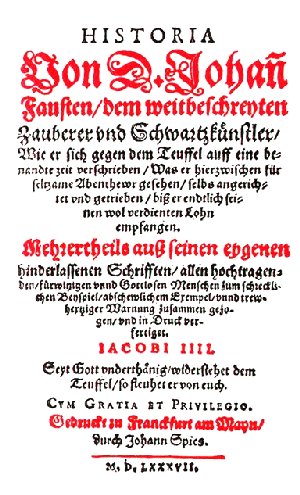 HISTORIA
Von D. Johañ
Fausten/dem weitbeschreyten
Zauberer vnd Schwartzkünstler/
Wie er sich gegen dem Teuffel auff eine be-
nandte zeit verschrieben/Was er hierzwischen für
seltzame Abenthewr gesehen/selbs angerich-
tet vnd getrieben/biß er endtlich sei-
nen wol verdienten Lohn
empfangen.
Mehrertheils auß seinen eygenen
hinderlassenen Schrifften/allen hochtragen-
den/fürwitzigen vnnd Gottlosen Menschen zum schreckli-
chen Beyspiel/abschewlichem Exempel/vnnd trew-
hertziger Warnung zusammen gezo-
gen/vnd in Druck ver-
fertiget.
IACOBI IIII.
Seyt Gott vnderthänig/widerstehet dem
Teuffel/so fleuhet er von euch.
CVM GRATIA ET PRIVILEGIO.
Gedruckt zu Franckfurt am Mayn/
durch Johann Spies.
M. D. LXXXVII.